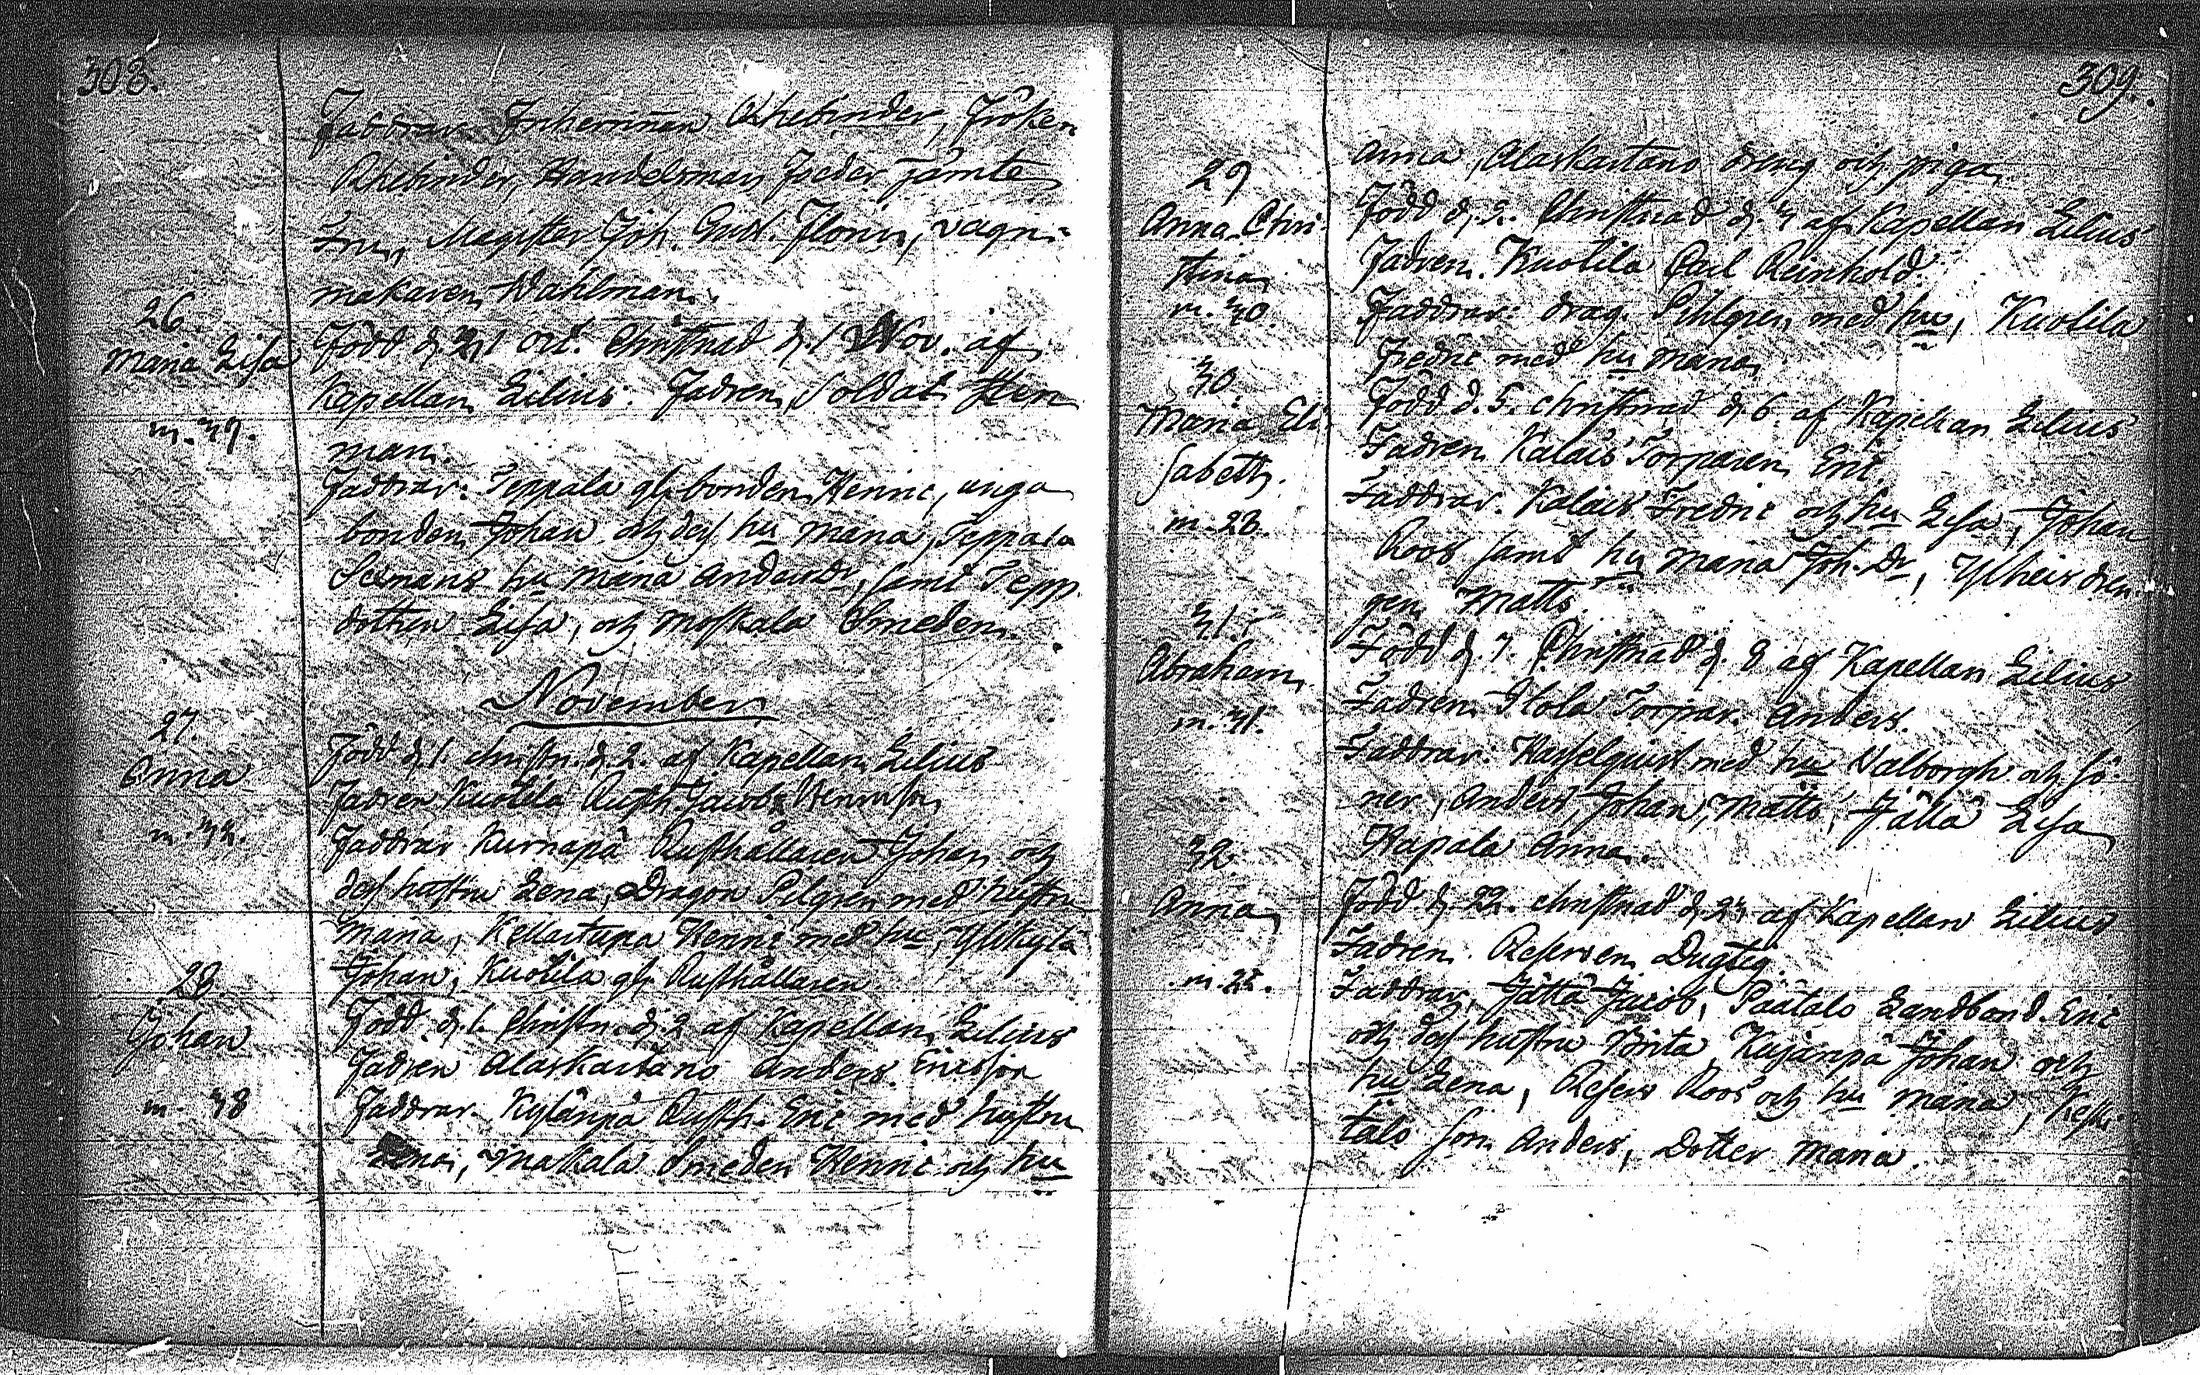 308.
Faddrar Friherrinnan Rhebinder, Fröken
Rhebinder, Handelsman Feder jämte
Fru, Magister Joh. Gust. Florin, vagn-
makaren Wahlman.
26.
Maria Lisa
m. 39.
Född d. 31 Oct. Christnad d. 1 Nov. af
Kapellan Zilius. Fadren, Soldat Sten
man.
Faddrar: Teppala gl. bonden Henric, unga
bonden Johan och dess hu Maria, Teppala
hu Maria Anders dr, samt Tepp.
dottren Lisa, och Moskala Smeden.
November
27.
Anna
m. 32.
Född d. 1. christn. d. 2. af Kapellan Zilius
Fadren Kuotila Rusth. Jacob Henricson
Faddrar Kurnapä Rusthållaren Johan och
dess hustru Lena, Dragon Pilgren med hustru
Maria, Kellastupa Henric med hu, Ylikylä
Johan, Kuotila gl. Rusthållaren
28
Johan
m. 38
Född d. 1. Christn. d. 2 af Kapellan Zilius
Fadren Alaskartano Anders Ericsson
Faddrar. Kylänpä Rusth. Eric med hustru
Lena, Makala Smeden Henric och hu
309.
Anna, Alaskartano dreng och piga.
29
Anna Chri
stina
m. 30.
Född d. 2. Christnad d. 3 af Kapellan Zilius
Fadren. Kuotila Carl Reinhold.
Faddrar: drag. Pihlgren med hu, Kuotila
Fredric med hu Maria
30.
Maria Eli
sabeth.
m. 28.
Född d. 5. christnad d. 6. af Kapellan Zilius
Fadren Kalais Torparen Eric
Faddrar. Kalais Fredric och hu Lisa, Johan
Roos samt hu Maria Joh. Dr, Ylheis dren
gen Matts.
31.
Abraham
m. 31.
Född d. 7. Christnad d. 8 af Kapellan Zilius
Fadren. Ilola Torpar. Anders.
Faddrar: Hasselquist med hu Walborgh och sö-
ner, Anders, Johan, Matts, Jällä Lisa
Hapala Anna.
32.
Anna
m. 25.
Född d. 22. christnad d. 23 af Kapellan Zilius
Fadren. Reserven Dugtig.
Faddrar, Jällä Jacob, Päätalo Landbond. Eric
och dess hustru Brita, Kujanpä Johan och
hu Lena, Reserv Roos och hu Maria, Keski
talo son Anders, Dotter Maria.